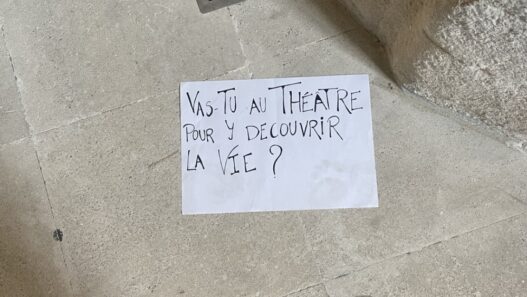 VAS-TU AU THÉATRE
POUR Y DECOUVRIR
LA VIE ?